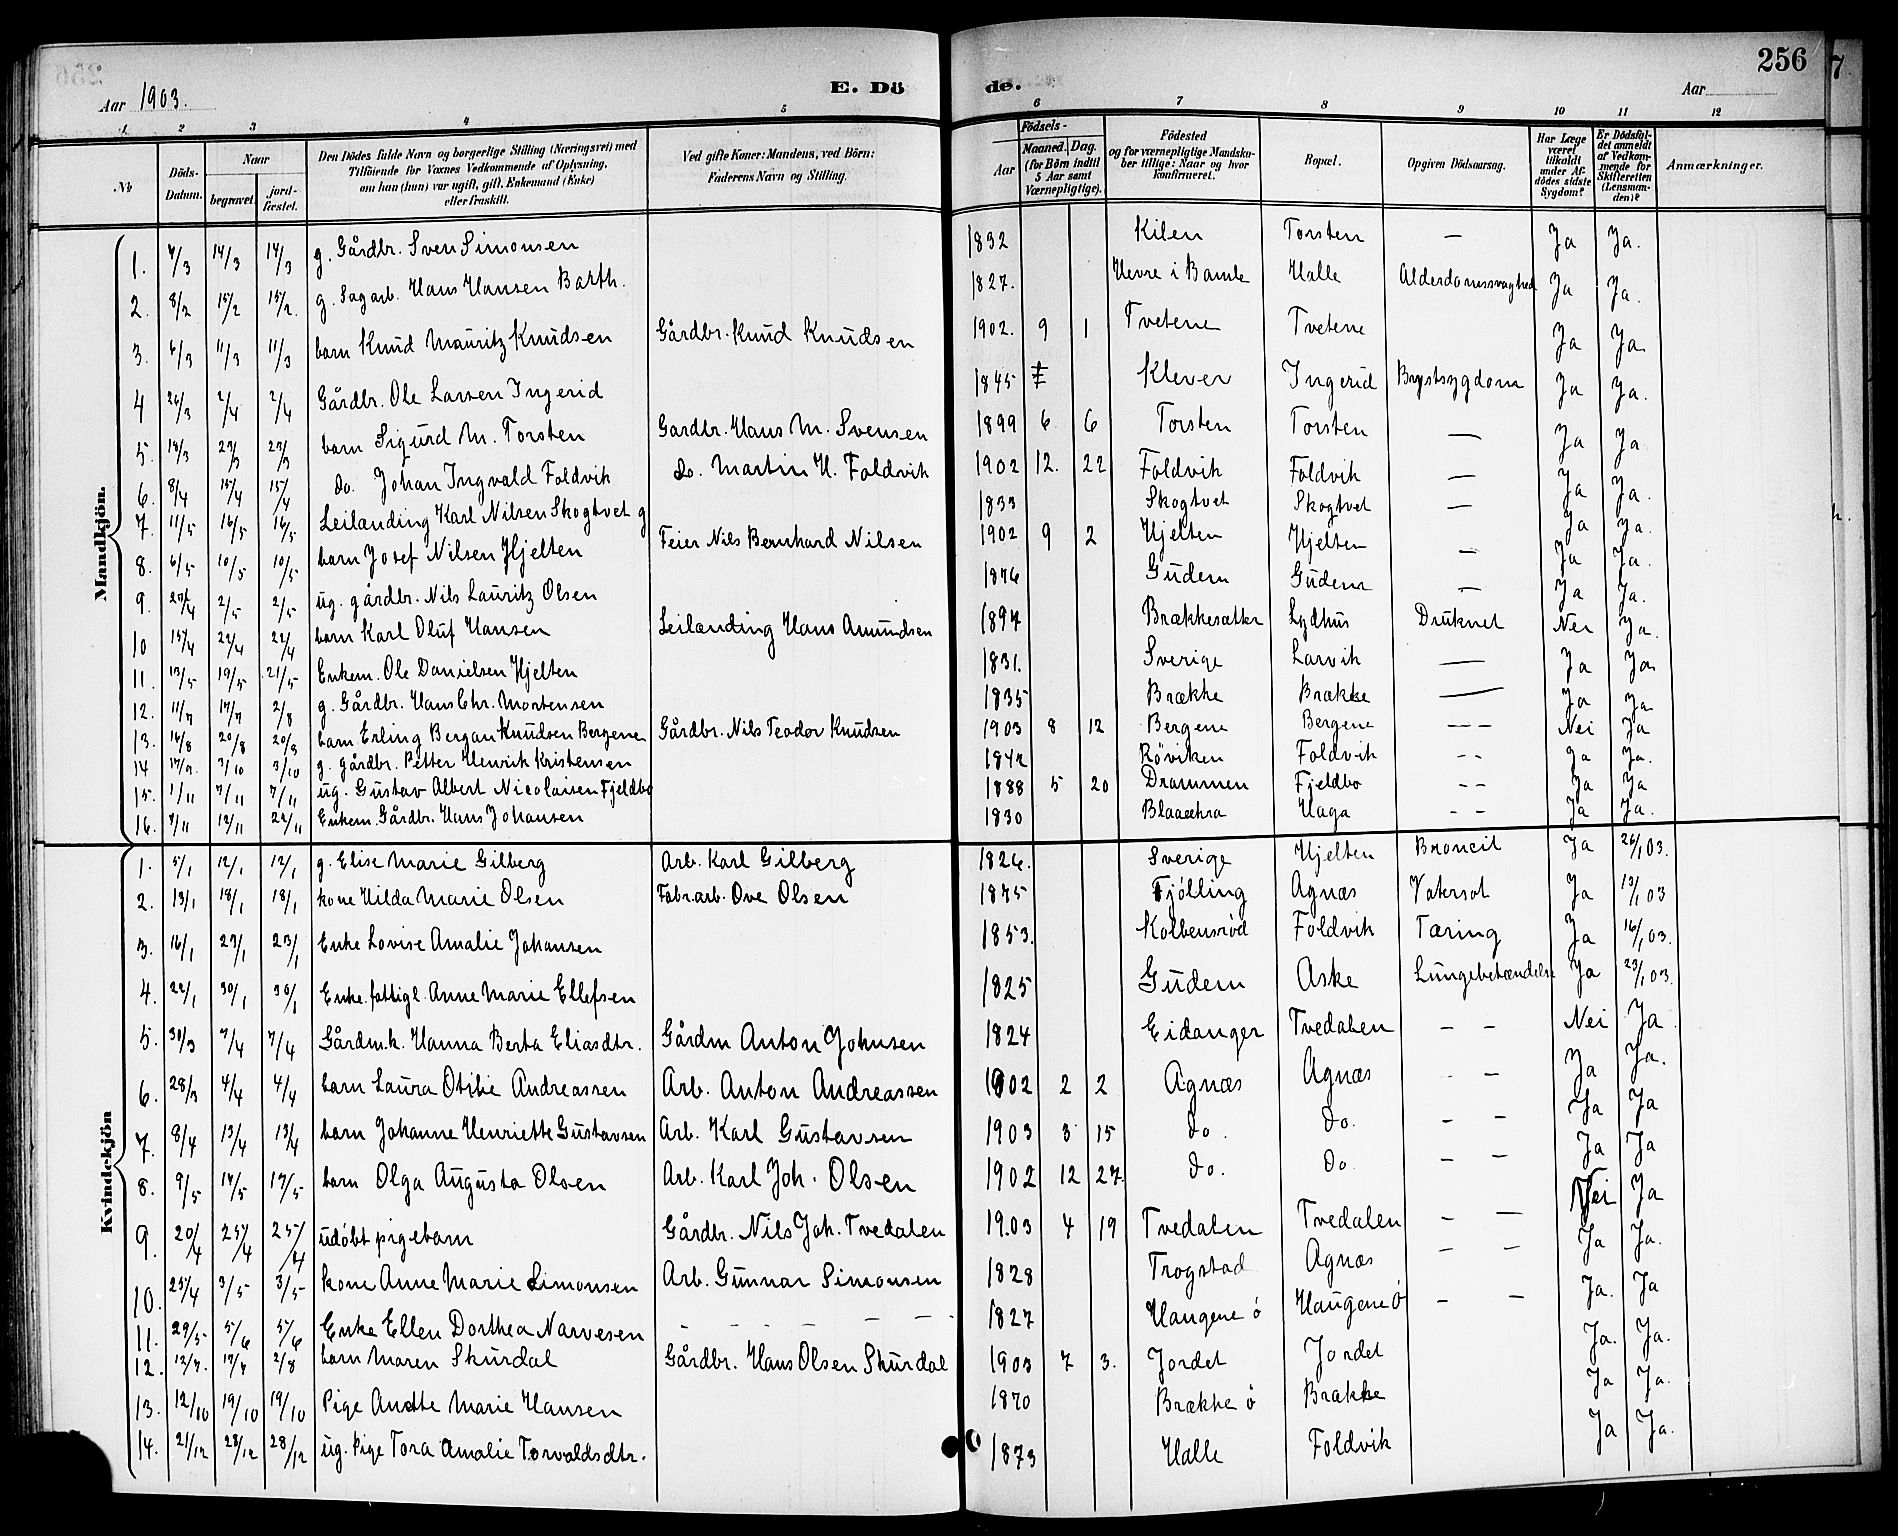 256
Aar 1903.
E. Dö
de.
Aar
1. 2 3 4 5 6 7 8 9 10 11 12
No
Döds-Datum.
Naar
begravet. jord-fæstet.
Den Dödes fulde Navn og borgerlige Stilling (Næringsvei) med Tilföiende for Voxnes Vedkommende af Oplysning, om han (hun) var ugift, gift, Enkemand (Enke) eller fraskilt.
Ved gifte Koner: Mandens, ved Börn: Faderens Navn og Stilling.
Födsels-
Aar
Maaned. Dag.
(for Börn indtil 5 Aar samt Værnepligtige).
Födested og for værnepligtige Mandskaber tillige: Naar og hvor Konfirmeret.
Bopæl.
Opgiven Dödsaarsag.
Har Læge været tilkaldt under Afdödes sidste Sygdom?
Er Dödsfaldet anmeldt af Vedkommende for Skifteretten (Lensmanden)?
Anmærkninger.
Mandkjön.
1. 7/3 14/3 14/3 g. Gårdbr. Sven Simonsen 1832 Kilen Torsten — Ja Ja.
2. 8/2 15/2 15/2. g. Sagarb. Hans Hansen Barth. 1827. Hevre i Bamle Halle Alderdomssvaghed Ja Ja.
3. 6/3 11/3 11/3 barn Knud Mauritz Knudsen Gårdbr. Knud Knudsen 1902. 9 1 Tvetene Tvetene Ja Ja
4 26/3 2/4 2/4 Gårdbr. Ole Larsen Ingerid 1845 Klever Ingerid Brystsygdom Ja Ja.
5. 14/3 23/3 23/3 barn Sigurd M. Torsten Gardbr. Hans M. Svensen 1899 6 6 Torsten Torsten — Ja Ja
6. 8/4 15/4 15/4 do. Johan Ingvald Foldvik do. Martin H. Foldvik 1902 12. 22 Foldvik Foldvik — Ja Ja.
7. 11/5 16/5 16/5 Leilanding Karl Nilsen Skogtvet g 1833 Skogtvet Skogtvet — Ja Ja.
8. 6/5 10/5 10/5 barn Josef Nilsen Hjelten Feier Nils Bernhard Nilsen 1902 9 2 Hjelten Hjelten — Ja Ja.
9. 2/5 2/5 ug. gårdbr. Nils Lauritz Olsen 1876 Gudem Gudem — Ja Ja.
10 15/4 22/4 22/4 barn Karl Oluf Hansen Leilænding Hans Amundsen 1897 Brækkesætter Lydhus Druknet Nei Ja.
11. 13/5 19/5 21/5 Enkem. Ole Danielsen Hjelten 1831. Sverige Larvik — Ja Ja
12. 11/7 17/7 2/8 g. Gårdbr. Hans Chr. Mortensen 1835 Brække Brække — Ja Ja
13. 16/8 20/8 20/8 barn Erling Bergan Knudsen Bergene Gårdbr. Nils Teodor Knudsen 1903 8 12 Bergene Bergene — — Nei Ja
14 3/10 3/10 g. gårdbr. Petter Henrik Kristensen Röviken Foldvik - - Ja Ja.
15. 1/11 7/11 7/11 ug. Gustav Albert Nicolaisen Fjeldbo 1888 5 20 Drammen Fjeldbo - - Ja Ja
16. 7/11 12/11 22/11 Enkem. Gårdbr. Hans Johansen 1830 Haga - - Ja Ja.
Kvindekjön
1. 5/1 12/1 12/1 g. Elise Marie Gilberg Arb. Karl Gilberg 1826. Sverige Hjelten Broncit Ja 26/1 03.
2. 13/1 18/1 18/1 kone Hilda Marie Olsen Fabr.arb. Ove Olsen 1875 Tjölling Agnæs Vatersot Ja 19/1 03
3. 16/1 23/1 23/1 Enke Lovise Amalie Johansen 1853. Kolbensröd Foldvik Tæring Ja 16/1 03.
4. 22/1 30/1 30/1 Enke. fattigl. Anne Marie Ellefsen 1825 Gudem Aske Lungebetændelse Ja 23/1 03.
5. 30/3 7/4 7/4 Gårdm.k. Hanna Berta Eliasdtr. Gårdm Anton Johnsen 1824 Eidanger Tvedalen - - Nei Ja
6. 28/3 4/4 4/4 barn Laura Otilie Andreassen Arb. Anton Andreassen 1902 2 2 Agnæs Agnæs - - Ja Ja.
7. 8/4 13/4 13/4 barn Johanne Henriette Gustavsen Arb. Karl Gustavsen 1903 3 15 do. do. - - Ja Ja
8. 9/5 17/5 17/5 barn Olga Augusta Olsen Arb. Karl Joh. Olsen 1902 12 27. do. do - - Ja Ja
9. 20/4 25/4 25/4 udöbt pigebarn Gårdbr. Nils Joh. Tvedalen 1903 4 19 Tvedalen Tvedalen - — Nei Ja
10. 25/4 3/5 3/5 kone Anne Marie Simonsen Arb. Gunnar Simonsen 1828 Trogstad Agnæs - - Ja Ja.
11. 29/5 5/6 5/6 Enke Ellen Dorthea Narvesen - - - - - 1827 Haugene ö Haugene ö - - Ja. Ja
12. 12/7. 17/7 2/8 barn Maren Skurdal Gårdbr. Hans Olsen Skurdal 1903 7 3. Jordet Jordet Ja. Ja.
13. 12/10 19/10 19/10 Pige Andte Marie Hansen 1870 Brække ö Brække Ja Ja.
14. 21/12 28/12 28/12 ug. Pige Tora Amalie Torvaldsdtr. 1873 Halle Foldvik Ja Ja.